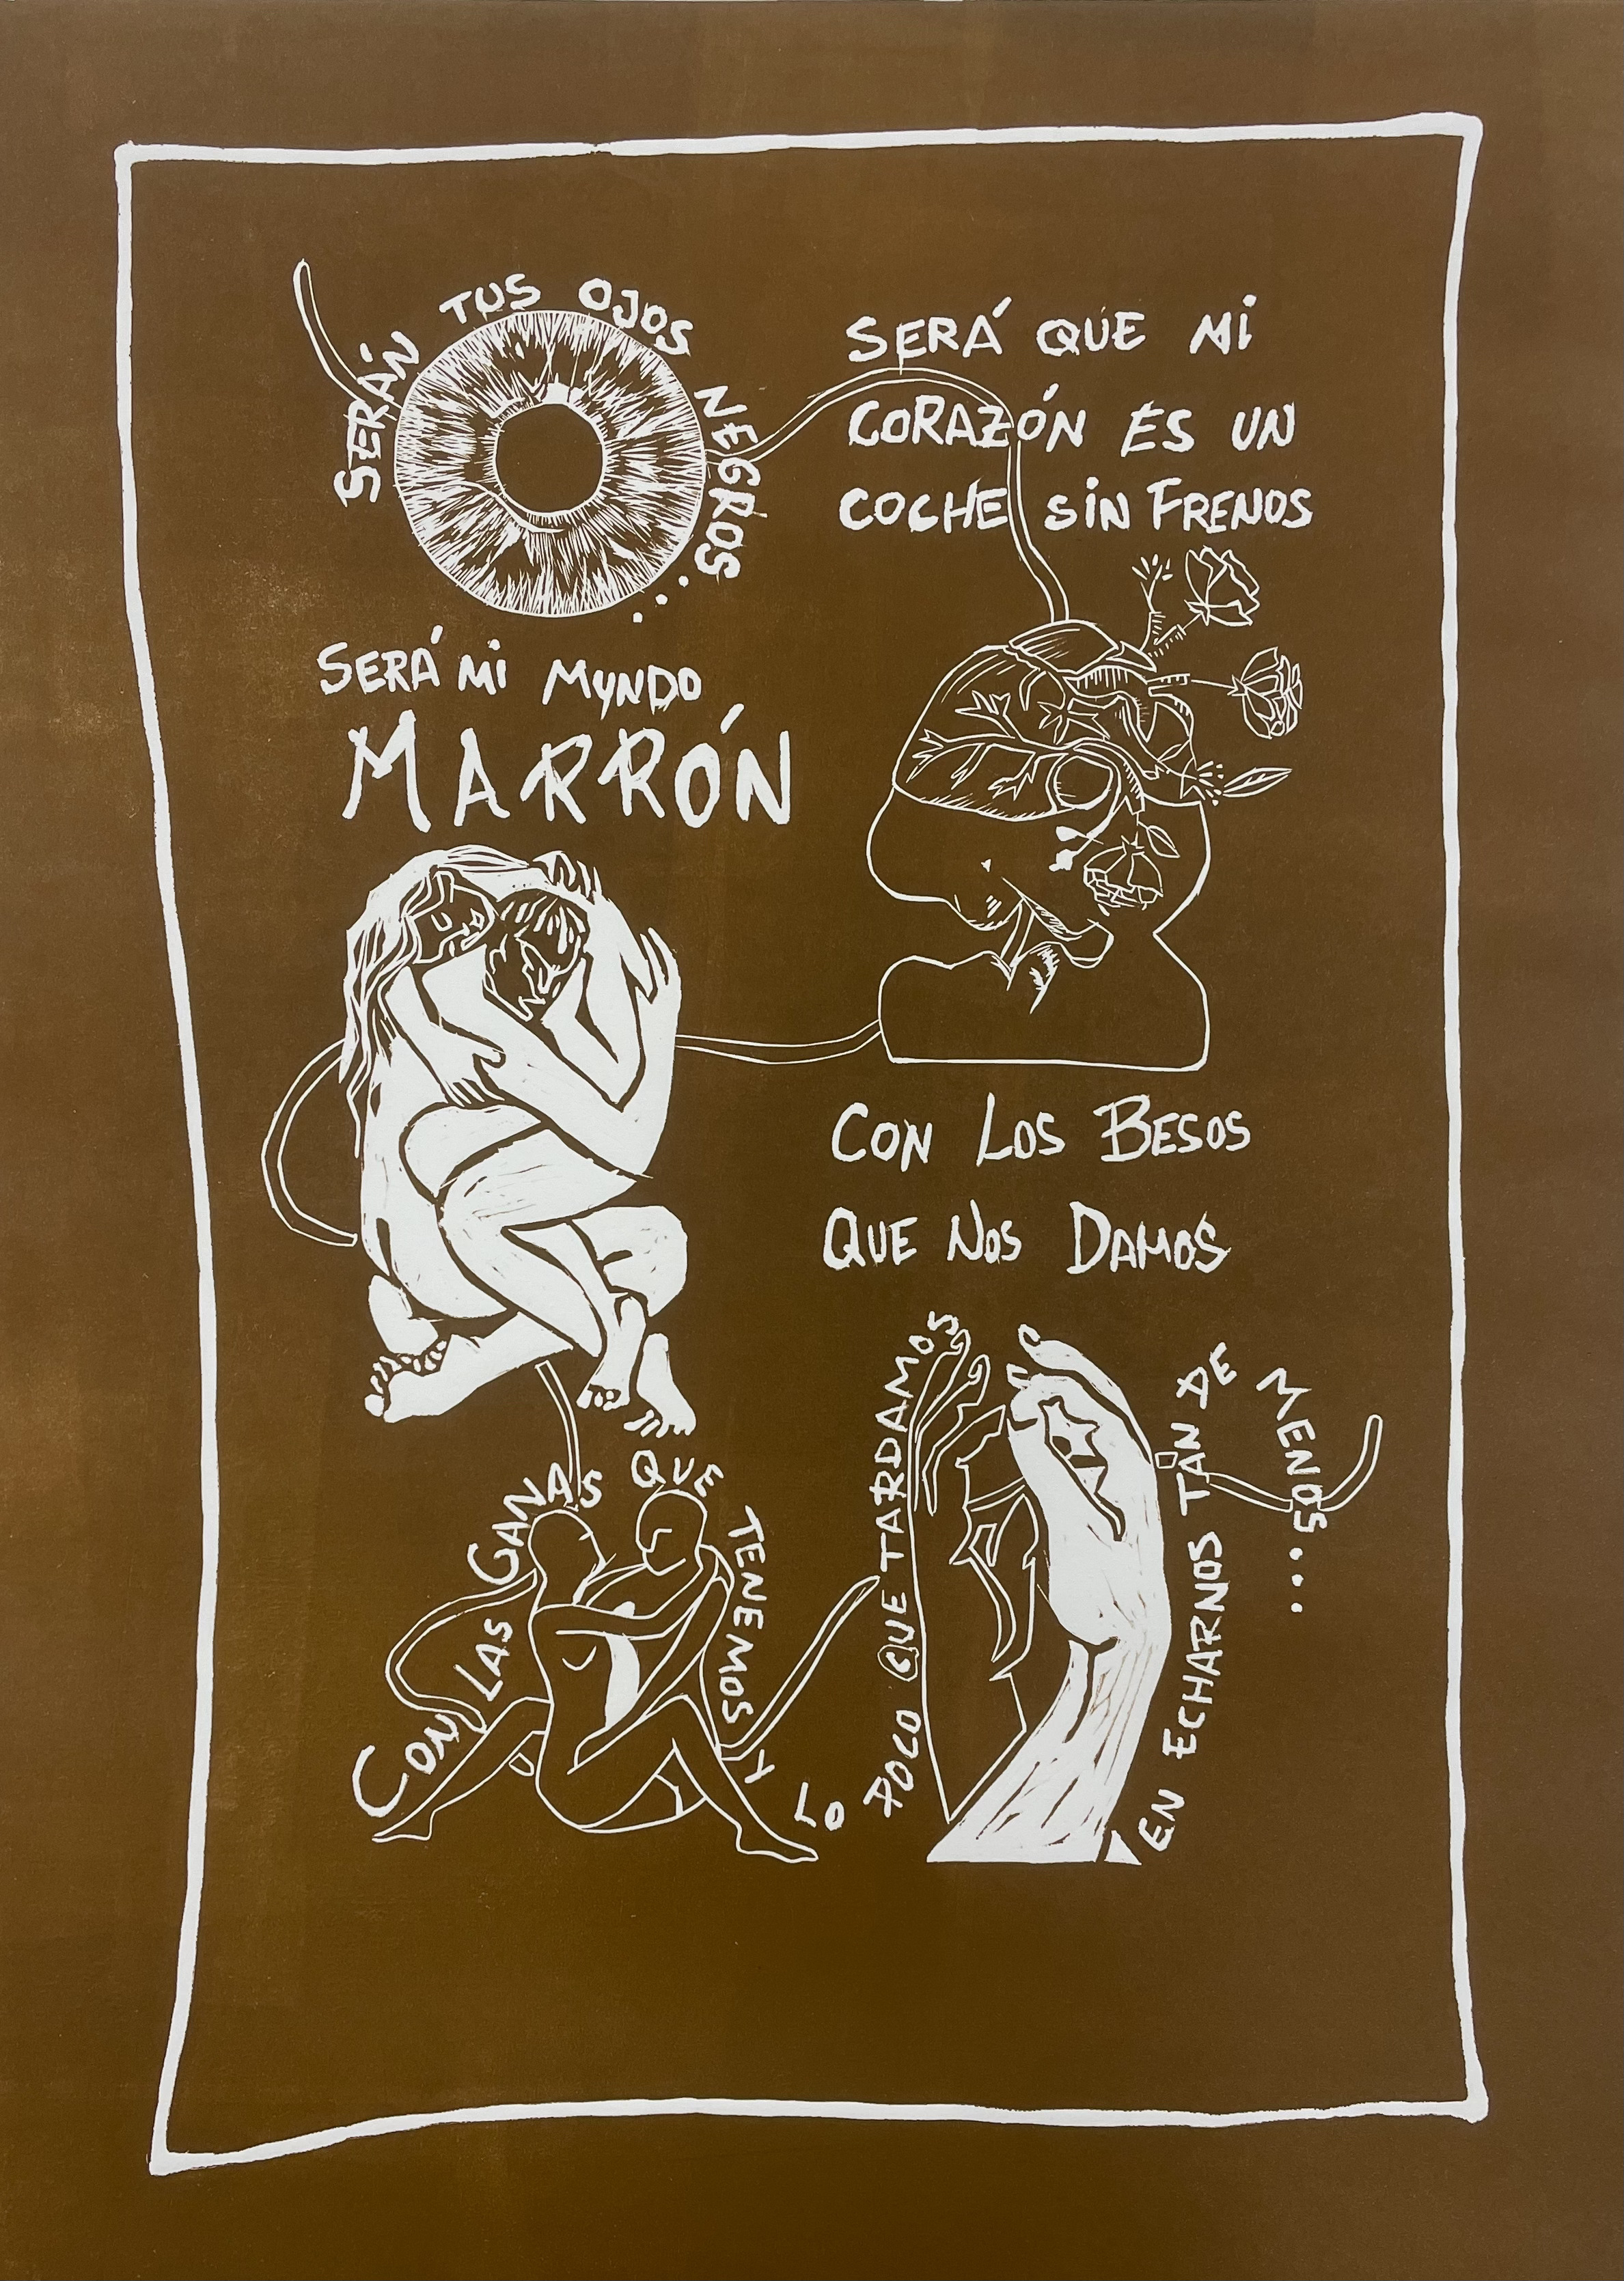 SERÁN TUS OJOS NEGROS...
SERÁ MI MUNDO
MARRÓN
SERÁ QUE MI
CORAZÓN ES UN
COCHE SIN FRENOS
CON LOS BESOS
QUE NOS DAMOS
CON LAS GANAS QUE TENEMOS Y LO POCO QUE TARDAMOS
EN ECHARNOS TAN DE MENOS...